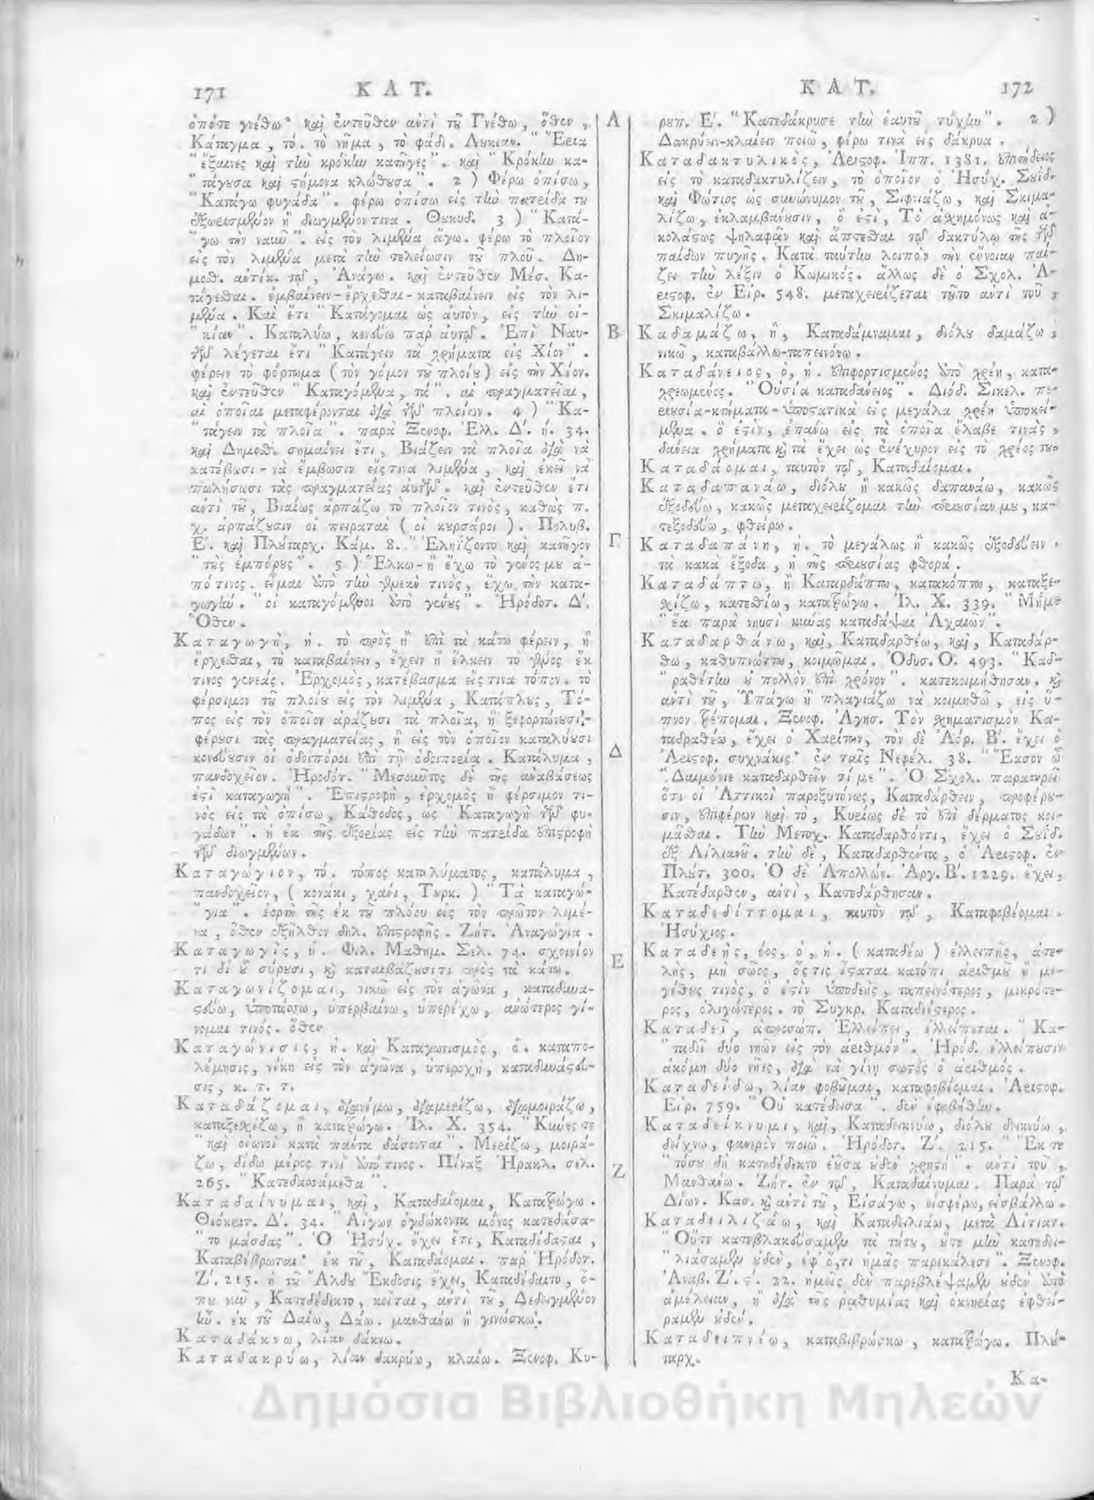 171 ΚΑΤ.
ὁπότε γνέθω· καὶ ἐντεῦθεν ἀντὶ τοῦ Γνέθω, ὅθεν,
Κάταγμα, τό. τὸ νῆμα, τὸ φάδι. Λυκιαν. "Ἔρια
"ἔξαινες καὶ τὴν κρόκην κατῆγες". καὶ "Κρόκην κα-
"τάγουσα καὶ στήμονα κλώθουσα". 2) Φέρω ὀπίσω,
"Κατάγω φυγάδα". φέρω ὀπίσω εἰς τὴν πατρίδα τὸν
ἐξωρισμένον ἢ διωγμένον τινα. Θουκυδ. 3) "Κατά-
"γω τὴν ναῦν". εἰς τὸν λιμένα ἄγω. φέρω τὸ πλοῖον
εἰς τὸν λιμένα μετὰ τὴν τελείωσιν τοῦ πλοῦ. Δη-
μοσθ. ἀντίκ. τῷ, Ἀνάγω. καὶ ἐντεῦθεν Μέσ. Κα-
τάγεσθαι. ἐμβαίνειν-ἔρχεσθαι-καταβαίνειν εἰς τὸν λι-
μένα. Καὶ ἔτι "Κατάγομαι ὡς αὐτόν, εἰς τὴν οἰ-
"κίαν". Καταλύω, κονεύω παρ' αὐτῷ. Ἐπὶ Ναυ-
τῶν λέγεται ἔτι "Κατάγειν τὰ χρήματα εἰς Χίον".
φέρειν τὸ φόρτωμα (τὸν γόμον τοῦ πλοίου) εἰς τὴν Χίον.
καὶ ἐντεῦθεν "Καταγόμενα, τά". αἱ πραγματεῖαι,
αἱ ὁποῖαι μεταφέρονται διὰ τῶν πλοίων. 4) "Κα-
"τάγειν τὰ πλοῖα". παρὰ Ξενοφ. Ἑλλ. Δ'. ή. 34.
καὶ Δημοσθ. σημαίνει ἔτι, Βιάζειν τὰ πλοῖα διὰ νὰ
κατέβωσι-νὰ ἔμβωσιν εἴς τινα λιμένα, καὶ ἐκεῖ νὰ
πωλήσωσι τὰς πραγματείας αὐτῶν. καὶ ἐντεῦθεν ἔτι
ἀντὶ τοῦ, Βιαίως ἁρπάζω τὸ πλοῖον τινός, καθὼς π.
χ. ἁρπάζουσιν οἱ πειραταὶ (οἱ κουρσάροι). Πολυβ.
Ε'. καὶ Πλούταρχ. Κάμ. 8. "Ἐληΐζοντο καὶ κατῆγον
"τοὺς ἐμπόρους". 5) Ἕλκω-ἢ ἔχω τὸ γένος μου ἀ-
πό τινος. εἶμαι ὑπὸ τὴν γενεὰν τινός, ἔχω τὴν κατα-
γωγήν. "οἱ καταγόμενοι ὑπὸ γένους". Ἡρόδοτ. Δ'.
Ὅθεν.
Καταγωγή, ἡ. τὸ πρὸς ἢ ἐπὶ τὰ κάτω φέρειν, ἢ
ἔρχεσθαι, τὸ καταβαίνειν, ἔχειν ἢ ἕλκειν τὸ γένος ἔκ
τινος γενεᾶς. Ἐρχομός, κατέβασμα εἴς τινα τόπον. τὸ
φέρσιμον τοῦ πλοίου εἰς τὸν λιμένα, Κατάπλους, Τό-
πος εἰς τὸν ὁποῖον ἀράζουσι τὰ πλοῖα, ἢ ξεφορτώνουσι,
φέρουσι τὰς πραγματείας, ἢ εἰς τὸν ὁποῖον καταλύουσι
κονεύουσιν οἱ ὁδοιπόροι ἐπὶ τῇ ὁδοιπορίᾳ. Κατάλυμα,
πανδοχεῖον. Ἡρόδοτ. "Μεσαυτῶς δὲ τῆς ἀναβάσεως
ἐστὶ καταγωγή". Ἐπιστροφή, ἐρχομὸς ἢ φέρσιμον τι-
νὸς εἰς τὰ ὀπίσω, Κάθοδος, ὡς Καταγωγὴ τῶν φυ-
γάδων". ἡ ἐκ τῆς ἐξορίας εἰς τὴν πατρίδα ἐπιστροφὴ
τῶν διωγμένων.
Καταγώγιον, τό. τόπος καταλύματος, κατάλυμα,
πανδοχεῖον, (κονάκι, χάνι, Τουρκ.) "Τὰ καταγώ-
"για". ἑορτὴ τῆς ἐκ τοῦ πλόου εἰς τὸν πρῶτον λιμέ-
να, ὅθεν ἐξῆλθεν δηλ. ἐπιστροφῆς. Ζήτ. Ἀναγώγια.
Καταγωγίς, ἡ. Φιλ. Μαθημ. Σελ. 74. σχοινίον
τι δι' οὗ σύρουσι, καὶ καταιβάζουσί τι πρὸς τὰ κάτω.
Καταγωνίζομαι, νικῶ εἰς τὸν ἀγῶνα, καταδυνα-
στεύω, ὑποτάσσω, ὑπερβαίνω, ὑπερέχω, ἀνώτερος γί-
νομαι τινός. ὅθεν
Καταγώνισις, ἡ. καὶ Καταγωνισμός, ὁ. καταπο-
λέμησις, νίκη εἰς τὸν ἀγῶνα, ὑπεροχή, καταδυνάστευ-
σις, κ. τ. τ.
Καταδάζομαι, διανέμω, διαμερίζω, διαμοιράζω,
καταξεσχίζω, ἢ κατατρώγω. Ἰλ. Χ. 354. "Κύνες τε
"καὶ οἰωνοὶ κατὰ πάντα δάσονται". Μερίζω, μοιρά-
ζω, δίδω μέρος τινὶ ἀπό τινος. Πίναξ Ἡρακλ. σελ.
265. "Κατεδασσάμεθα".
Καταδαίνυμαι, καὶ, Καταδαίομαι, Κατατρώγω.
Θεόκριτ. Δ'. 34. "Αἴγων ὀγδώκοντα μόνος κατεδάσα-
"το μάσδας". Ὁ Ἡσύχ. ἔχει ἔτι, Καταδέδασται,
Καταβέβρωται· ἐκ τοῦ, Καταδάομαι. παρ' Ἡρόδοτ.
Ζ'. 215. ἡ τοῦ Ἄλδου Ἔκδοσις ἔχει, Καταδέδαιτο, ὅ-
που νῦν, Κατεδέδεκτο, κεῖται, ἀντὶ τοῦ, Δεδειγμένον
ἦν. ἐκ τοῦ Δαίω, Δάω. μανθάνω ἢ γινώσκω.
Καταδάκνω, λίαν δάκνω.
Καταδακρύω, λίαν δακρύω, κλαίω. Ξενοφ. Κυ-
Α
Β
Γ
Δ
Ε
Ζ
ΚΑΤ. 172
ρουπ. Ε'. "Κατεδάκρυσε τὴν ἑαυτοῦ τύχην". 2)
Δακρύειν-κλαίειν ποιῶ, φέρω τινὰ εἰς δάκρυα.
Καταδακτυλικός, Ἀριστοφ. Ἱππ. 1381. ἐπιτήδειος
εἰς τὸ καταδακτυλίζειν, τὸ ὁποῖον ὁ Ἡσύχ. Σουίδ.
καὶ Φώτιος ὡς συνώνυμον τοῦ, Σιφνιάζω, καὶ Σκιμα-
λίζω, ἐκλαμβάνουσιν, ὅ ἐστι, Τὸ ἀσχημόνως καὶ ἀ-
κολάστως ψηλαφᾶν καὶ ἅπτεσθαι τῷ δακτύλῳ τῆς τῶν
παίδων πυγῆς. Κατὰ ταύτην λοιπὸν τὴν ἔννοιαν παί-
ζει τὴν λέξιν ὁ Κωμικός. ἄλλως δὲ ὁ Σχολ. Ἀ-
ριστοφ. ἐν Εἰρ. 548. μεταχειρίζεται τοῦτο ἀντὶ τοῦ,
Σκιμαλίζω.
Καδαμάζω, ἤ, Καταδάμναμαι, διόλου δαμάζω,
νικῶ, καταβάλλω-ταπεινόνω.
Καταδάνειος, ὁ, ἡ. ἐπιφορτισμένος ὑπὸ χρέη, κατα-
χρεωμένος. "Οὐσία καταδάνειος". Διόδ. Σικελ. πε-
ριουσία-κτήματα-ὑποστατικὰ εἰς μεγάλα χρέη ὑποκεί-
μενα. ὅ ἐστιν, ἐπάνω εἰς τὰ ὁποῖα ἔλαβέ τινας,
δάνεια χρήματα καὶ τὰ ἔχει ὡς ἐνέχυρον εἰς τὸ χρέος του.
Καταδάομαι, ταυτὸν τῷ, Καταδαίομαι.
Καταδαπανάω, διόλου ἢ κακῶς δαπανάω, κακῶς
ἐξοδεύω, κακῶς μεταχειρίζομαι τὴν περιουσίαν μου, κα-
τεξοδεύω, φθείρω.
Καταδαπάνη, ἡ. τὸ μεγάλως ἢ κακῶς ἐξοδεύειν.
τὰ κακὰ ἔξοδα, ἡ τῆς περιουσίας φθορά.
Καταδάπτω, ἢ Καταρδάπτω, κατακόπτω, καταξε-
σχίζω, κατεσθίω, κατατρώγω. Ἰλ. Χ. 339. "Μή με
"ἔα παρὰ νηυσὶ κύνας καταδάψαι Ἀχαιῶν".
Καταδαρθάνω, καὶ, Καταδαρθέω, καὶ, Καταδάρ-
θω, καθυπνώττω, κοιμῶμαι. Ὀδυσ. Ο. 493. "Καδ-
"ραθέτην οὐ πολλὸν ἐπὶ χρόνον". κατεκοιμήθησαν. καὶ
ἀντὶ τοῦ, Ὑπάγω ἢ πλαγιάζω νὰ κοιμηθῶ, εἰς ὕ-
πνον τρέπομαι. Ξενοφ. Ἀγησ. Τὸν σχηματισμὸν Κα-
ταδραθέω, ἔχει ὁ Χαρίτων, τὸν δὲ Ἀόρ. Β'. ἔχει ὁ
Ἀριστοφ. συχνάκις· ἐν ταῖς Νεφέλ. 38. "Ἔασον ὦ
"Δαιμόνιε καταδαρθεῖν τί με". Ὁ Σχολ. παρατηρεῖ
ὅτι οἱ Ἀττικοὶ παροξυτόνως, Καταδάρθειν, προφέρου-
σιν, ἐπιφέρων καὶ τό, Κυρίως δὲ τὸ ἐπὶ δέρματος κοι-
μᾶσθαι. Τὴν Μετοχ. Καταδαρθόντι, ἔχει ὁ Σουίδ.
ἐξ Αἰλιανοῦ. τὴν δέ, Καταδαρθέντα, ὁ Ἀριστοφ. ἐν
Πλούτ. 300. Ὁ δὲ Ἀπολλών. Ἀργ. Β'. 1229. ἔχει,
Κατέδαρθεν, ἀντί, Κατεδάρθησαν.
Καταδεδίττομαι, ταυτὸν τῷ, Καταφοβέομαι.
Ἡσύχιος.
Καταδεής, έος, ὁ, ἡ. (καταδέω) ἐλλειπής, ἀτε-
λής, μὴ σῶος, ὅς τις ἵσταται κατόπι ἀριθμοῦ ἢ με-
γέθους τινός, ὅ ἐστιν ὑποδεής, ταπεινότερος, μικρότε-
ρος, ὀλιγώτερος. τὸ Συγκρ. Καταδεέστερος.
Καταδεῖ, ἀπροσώπ. Ἐλλείπει, ἐλλείπεται. "Κα-
"ταδεῖ δύο νηῶν εἰς τὸν ἀριθμόν". Ἡρόδ. ἐλλείπουσιν
ἀκόμη δύο νῆες, διὰ νὰ γίνῃ σωστὸς ὁ ἀριθμός.
Καταδείδω, λίαν φοβῶμαι, καταφοβέομαι. Ἀριστοφ.
Εἰρ. 759. "Οὐ κατέδεισα". δὲν ἐφοβήθην.
Καταδείκνυμι, καὶ, Καταδεικνύω, διόλου δεικνύω,
δείχνω, φανερὸν ποιῶ. Ἡρόδοτ. Ζ'. 215. "Ἔκ τε
"τόσου δὴ κατεδέδεκτο ἐοῦσα οὐδὲν χρηστή". ἀντὶ τοῦ,
Μανθάνω. Ζήτ. ἐν τῷ, Καταδαίνυμαι. Παρὰ τῷ
Δίων. Κασ. καὶ ἀντὶ τοῦ, Εἰσάγω, εἰσφέρω, εἰσβάλλω.
Καταδειλιζάω, καὶ Καταδειλιάω, μετὰ Αἰτιατ.
"Οὔτε κατεβλακεύσαμεν τὰ τούτου, οὔτε μὴν κατεδει-
"λιάσαμεν οὐδέν, ἐφ' ὅ,τι ἡμᾶς παρεκάλεσε". Ξενοφ.
Ἀναβ. Ζ'. ς'. 22. ἡμεῖς δὲν παρεβλέψαμεν οὐδὲν ὑπὸ
ἀμέλειαν, ἢ διὰ τῆς ῥαθυμίας καὶ ὀκνηρίας ἐφθεί-
ραμεν οὐδέν.
Καταδειπνέω, καταβιβρώσκω, κατατρώγω. Πλού-
ταρχ.
Κα-
Δημόσια Βιβλιοθήκη Μηλεών